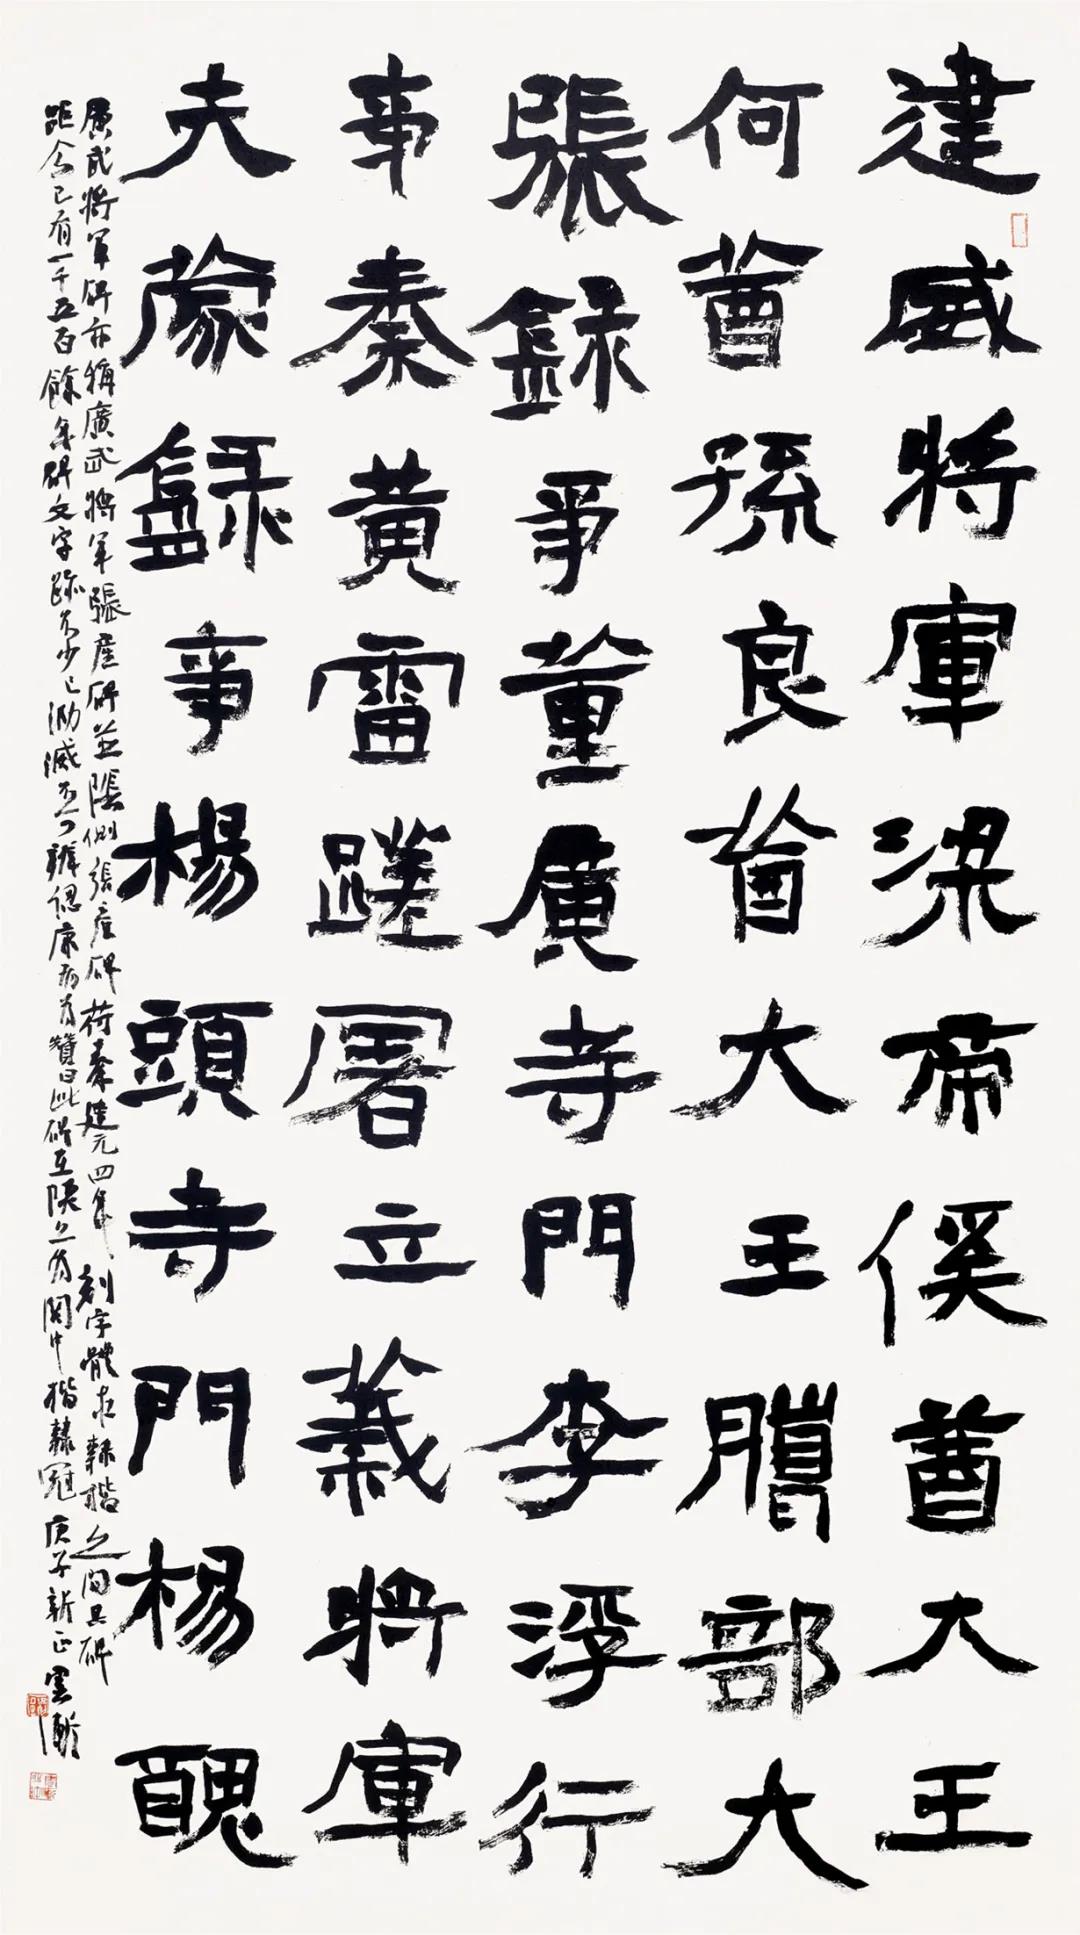 建威將軍梁帝傒酋大王
何酋孫良酋大王騰部大
張錄事董廣寺門李浮行
事秦黃雷蹉屠立義將軍
夫蒙錄事楊頭寺門楊醜
廣武將軍碑亦稱廣武將軍張產碑並陰側張產碑苻秦建元四年刻字體在隸楷之間其碑
距今已有一千五百餘年碑文字跡不少已泐滅不可辨認康有為贊曰此碑在陝亦為關中楷隸冠庚子新正